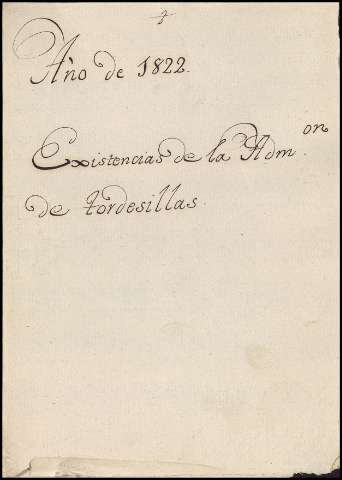 Año de 1822.
Existencias de la Admon.
de tordesillas.